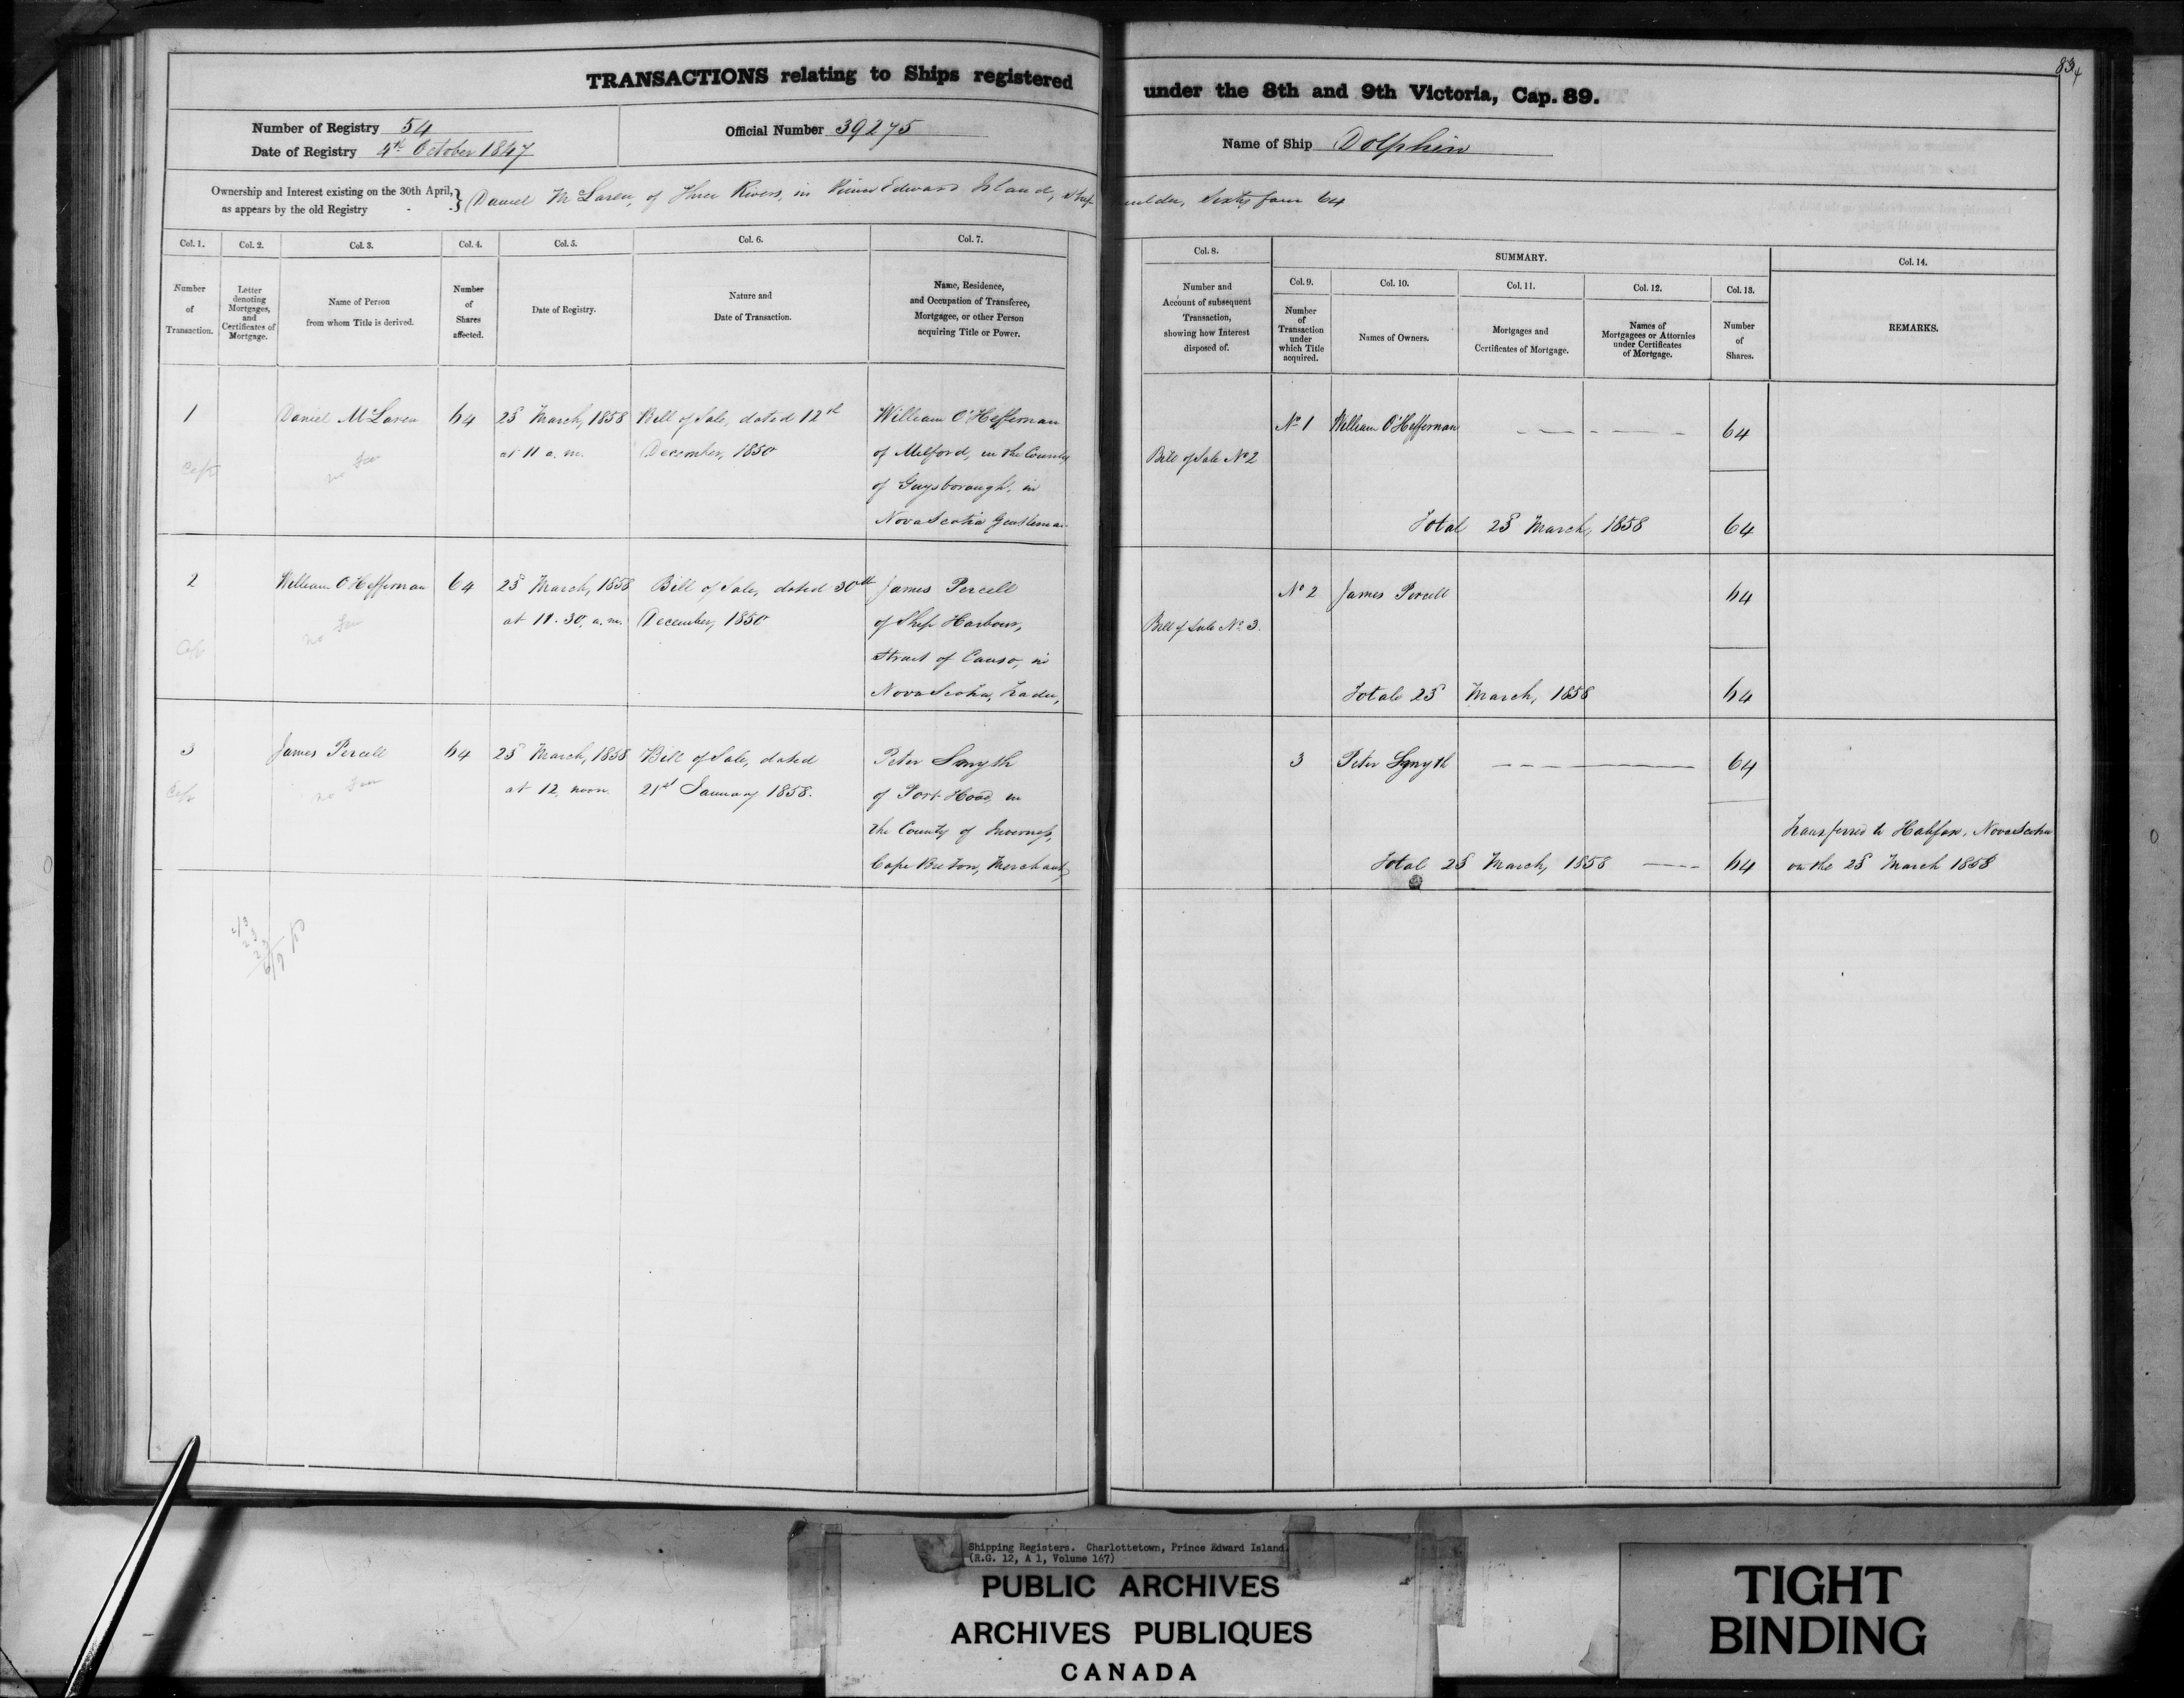 834
TRANSACTIONS relating to Ships registered under the 8th and 9th Victoria, Cap. 89.
Number of Registry 54
Date of Registry 4th October 1847
Official Number 39275
Name of Ship Dolphin
Ownership and Interest existing on the 30th April, as appears by the old Registry } Daniel McLaren, of Three Rivers, in Prince Edward Island, Ship builder, Sixty four 64
Col. 1.
Number
of
Transaction.
Col. 2.
Letter
denoting
Mortgages,
and
Certificates of
Mortgage.
Col. 3.
Name of Person
from whom Title is derived.
Col. 4.
Number
of
Shares
affected.
Col. 5.
Date of Registry.
Col. 6.
Nature and
Date of Transaction.
Col. 7.
Name, Residence,
and Occupation of Transferee,
Mortgagee, or other Person
acquiring Title or Power.
Col. 8.
Number and
Account of subsequent
Transaction,
showing how Interest
disposed of.
SUMMARY.
Col. 9.
Number
of
Transaction
under
which Title
acquired.
Col. 10.
Names of Owners.
Col. 11.
Mortgages and
Certificates of Mortgage.
Col. 12.
Names of
Mortgagees or Attornies
under Certificates
of Mortgage.
Col. 13.
Number
of
Shares.
Col. 14.
REMARKS.
1
Daniel McLaren
no fee
64
25 March, 1858
at 11 a.m.
Bill of Sale, dated 12th
December, 1850
William O'Heffernan
of Milford, in the County
of Guysborough, in
Nova Scotia Gentleman
Bill of Sale No 2
No 1 William O'Heffernan 64
Total 25 March, 1858 64
2
William O'Heffernan
no fee
64
25 March, 1858
at 11.30. a.m.
Bill of Sale, dated 30th
December, 1850
James Percell
of Ship Harbour,
Strait of Canso, in
Nova Scotia, Trader,
Bill of Sale No 3.
No 2 James Percell 64
Total 25 March, 1858 64
3
James Percell
no fee
64
25 March, 1858
at 12, noon.
Bill of Sale, dated
21st January 1858.
Peter Smyth
of Port Hood, in
the County of Inverness,
Cape Breton, Merchant,
3 Peter Smyth 64
Total 25 March, 1858 64
Transferred to Halifax, Nova Scotia
on the 25 March 1858
Shipping Registers. Charlottetown, Prince Edward Island.
(R.G. 12, A 1, Volume 167)
PUBLIC ARCHIVES
ARCHIVES PUBLIQUES
CANADA
TIGHT
BINDING